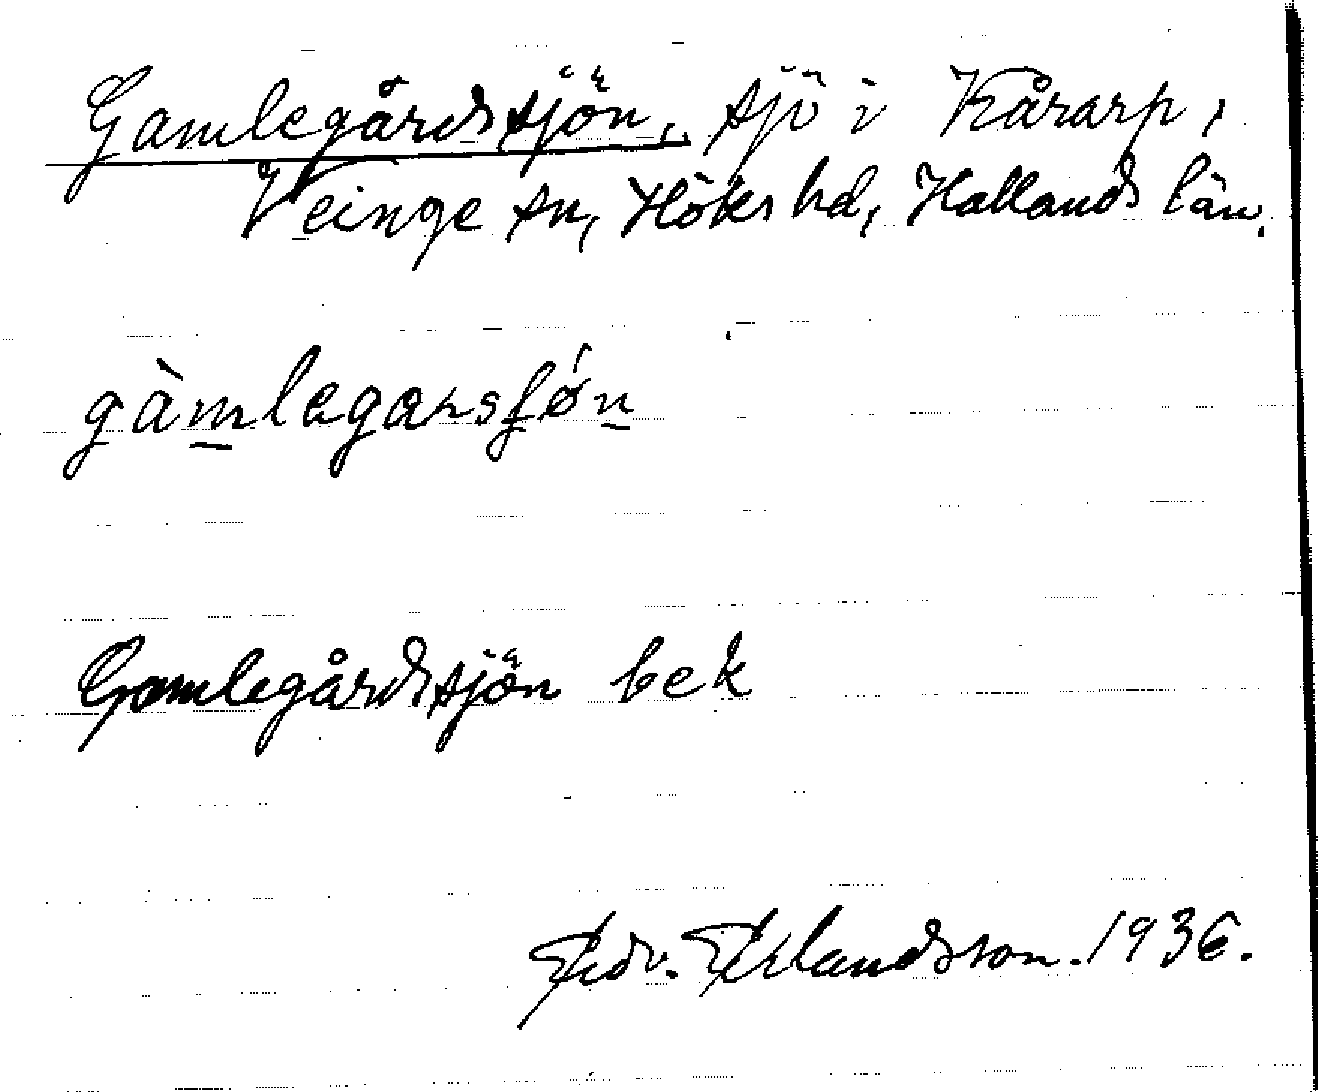 Gamlegårdssjön, sjö i Kårarp,
Veinge sn, Höks hd, Hallands län.
gàmlegarsʃǿn
Gamlegårdssjön bek
Edv. Erlandsson. 1936.